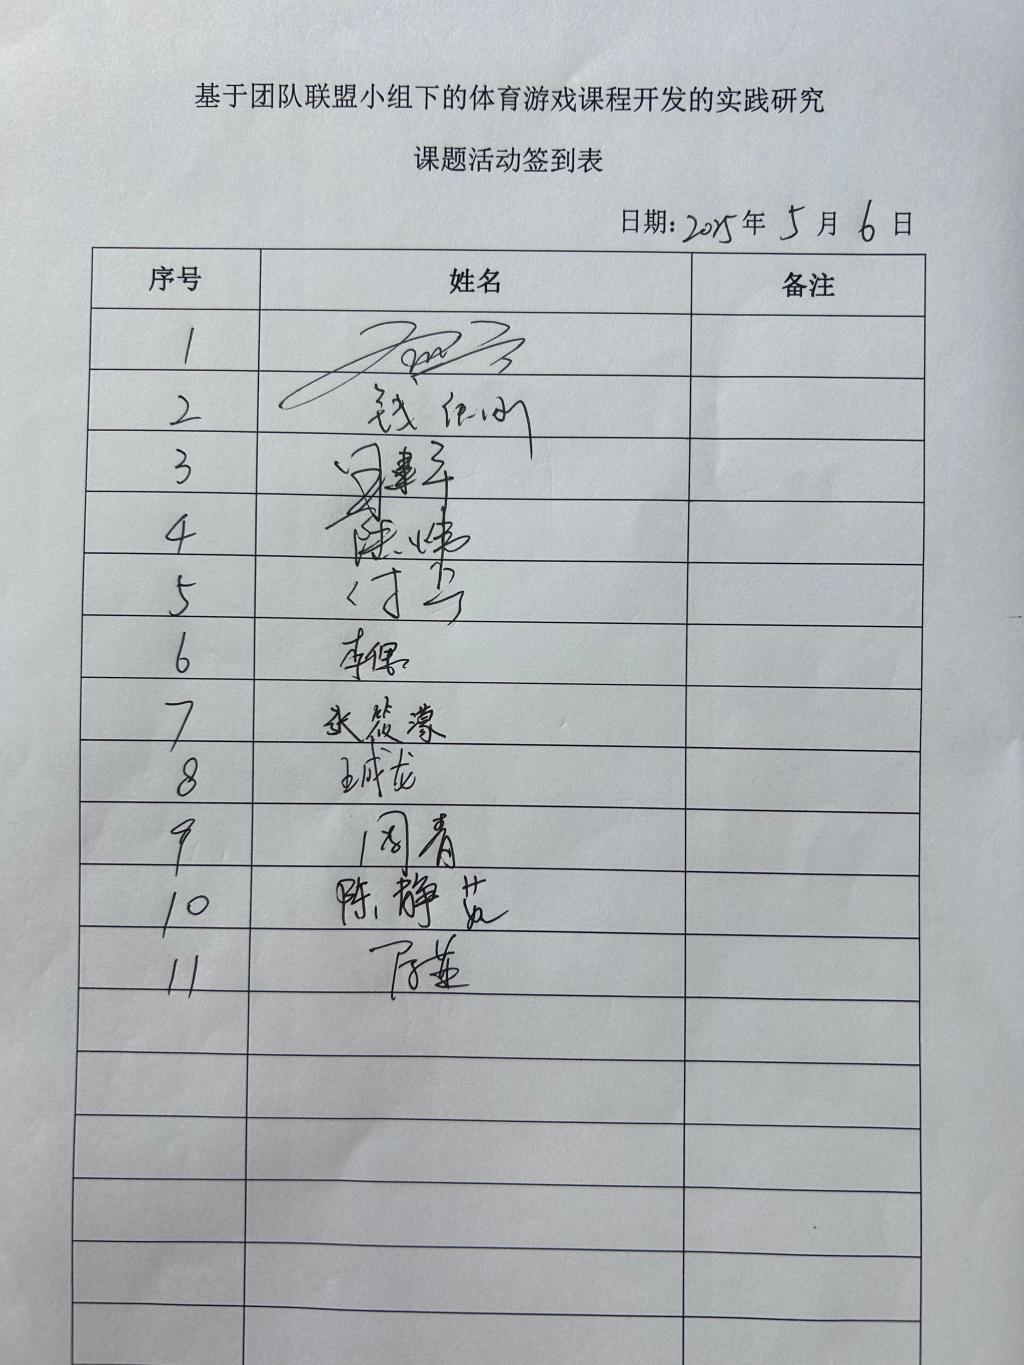 基于团队联盟小组下的体育游戏课程开发的实践研究
课题活动签到表
日期: 2025 年 5 月 6 日
序号 姓名 备注
1
2 钱
3 建平
4 陈炜
5 付
6 李偲
7 张筱濛
8 王成龙
9 周青
10 陈静茹
11